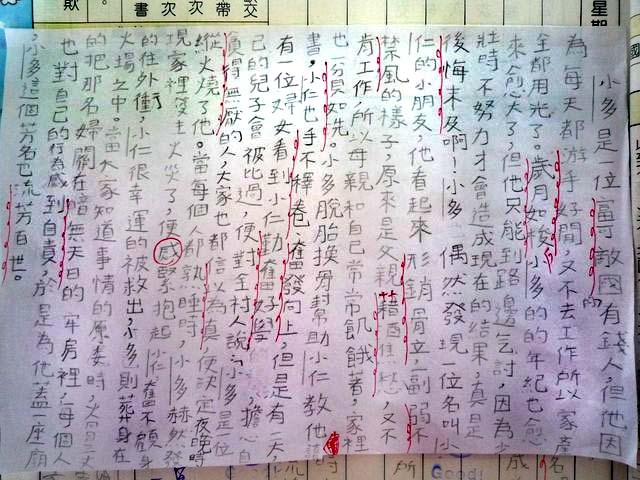 小多是一位富敵國的有錢人，但他因
為每天都游手好閒，又不去工作所以家產
全都用光了。歲月如梭，小多的的年紀也愈
來愈大了，但他只能到路邊乞討，因為少
壯時不努力才會造成現在的結果，真是
後悔末及啊！小多偶然發現一位名叫小
仁的小朋友，他看起來形銷骨立，一副弱不
禁風的樣子，原來是父親藉酒焦愁，又不
肯工作，所以母親和自己常常飢餓著，家裡
也一貧如洗。小多脫胎換骨幫助小仁教他
書，小仁也手不釋卷奮發向上，但是有一天，
有一位婦女看到小仁勤奮好學，擔心自
己的兒子會被比過，便對全村人說：小多是位
貪得無猒的人，大家也都信以為真，便決定夜晚時
縱火燒了他。當每個人都熟睡時，小多赫然發
現家裡發生火災了，便感緊抱起小仁奮不顧身
的往外衝，小仁很幸運的被救出，小多則葬身在
火場之中。當大家知道事情的原委時，
的把那名婦關在暗無天日的牢房裡，每個人
也對自己的行為感到自責，於是為他蓋一座廟
小多這個芳名也流芳百世。
書 次 次 帶 交
款
星期
國
所
Good